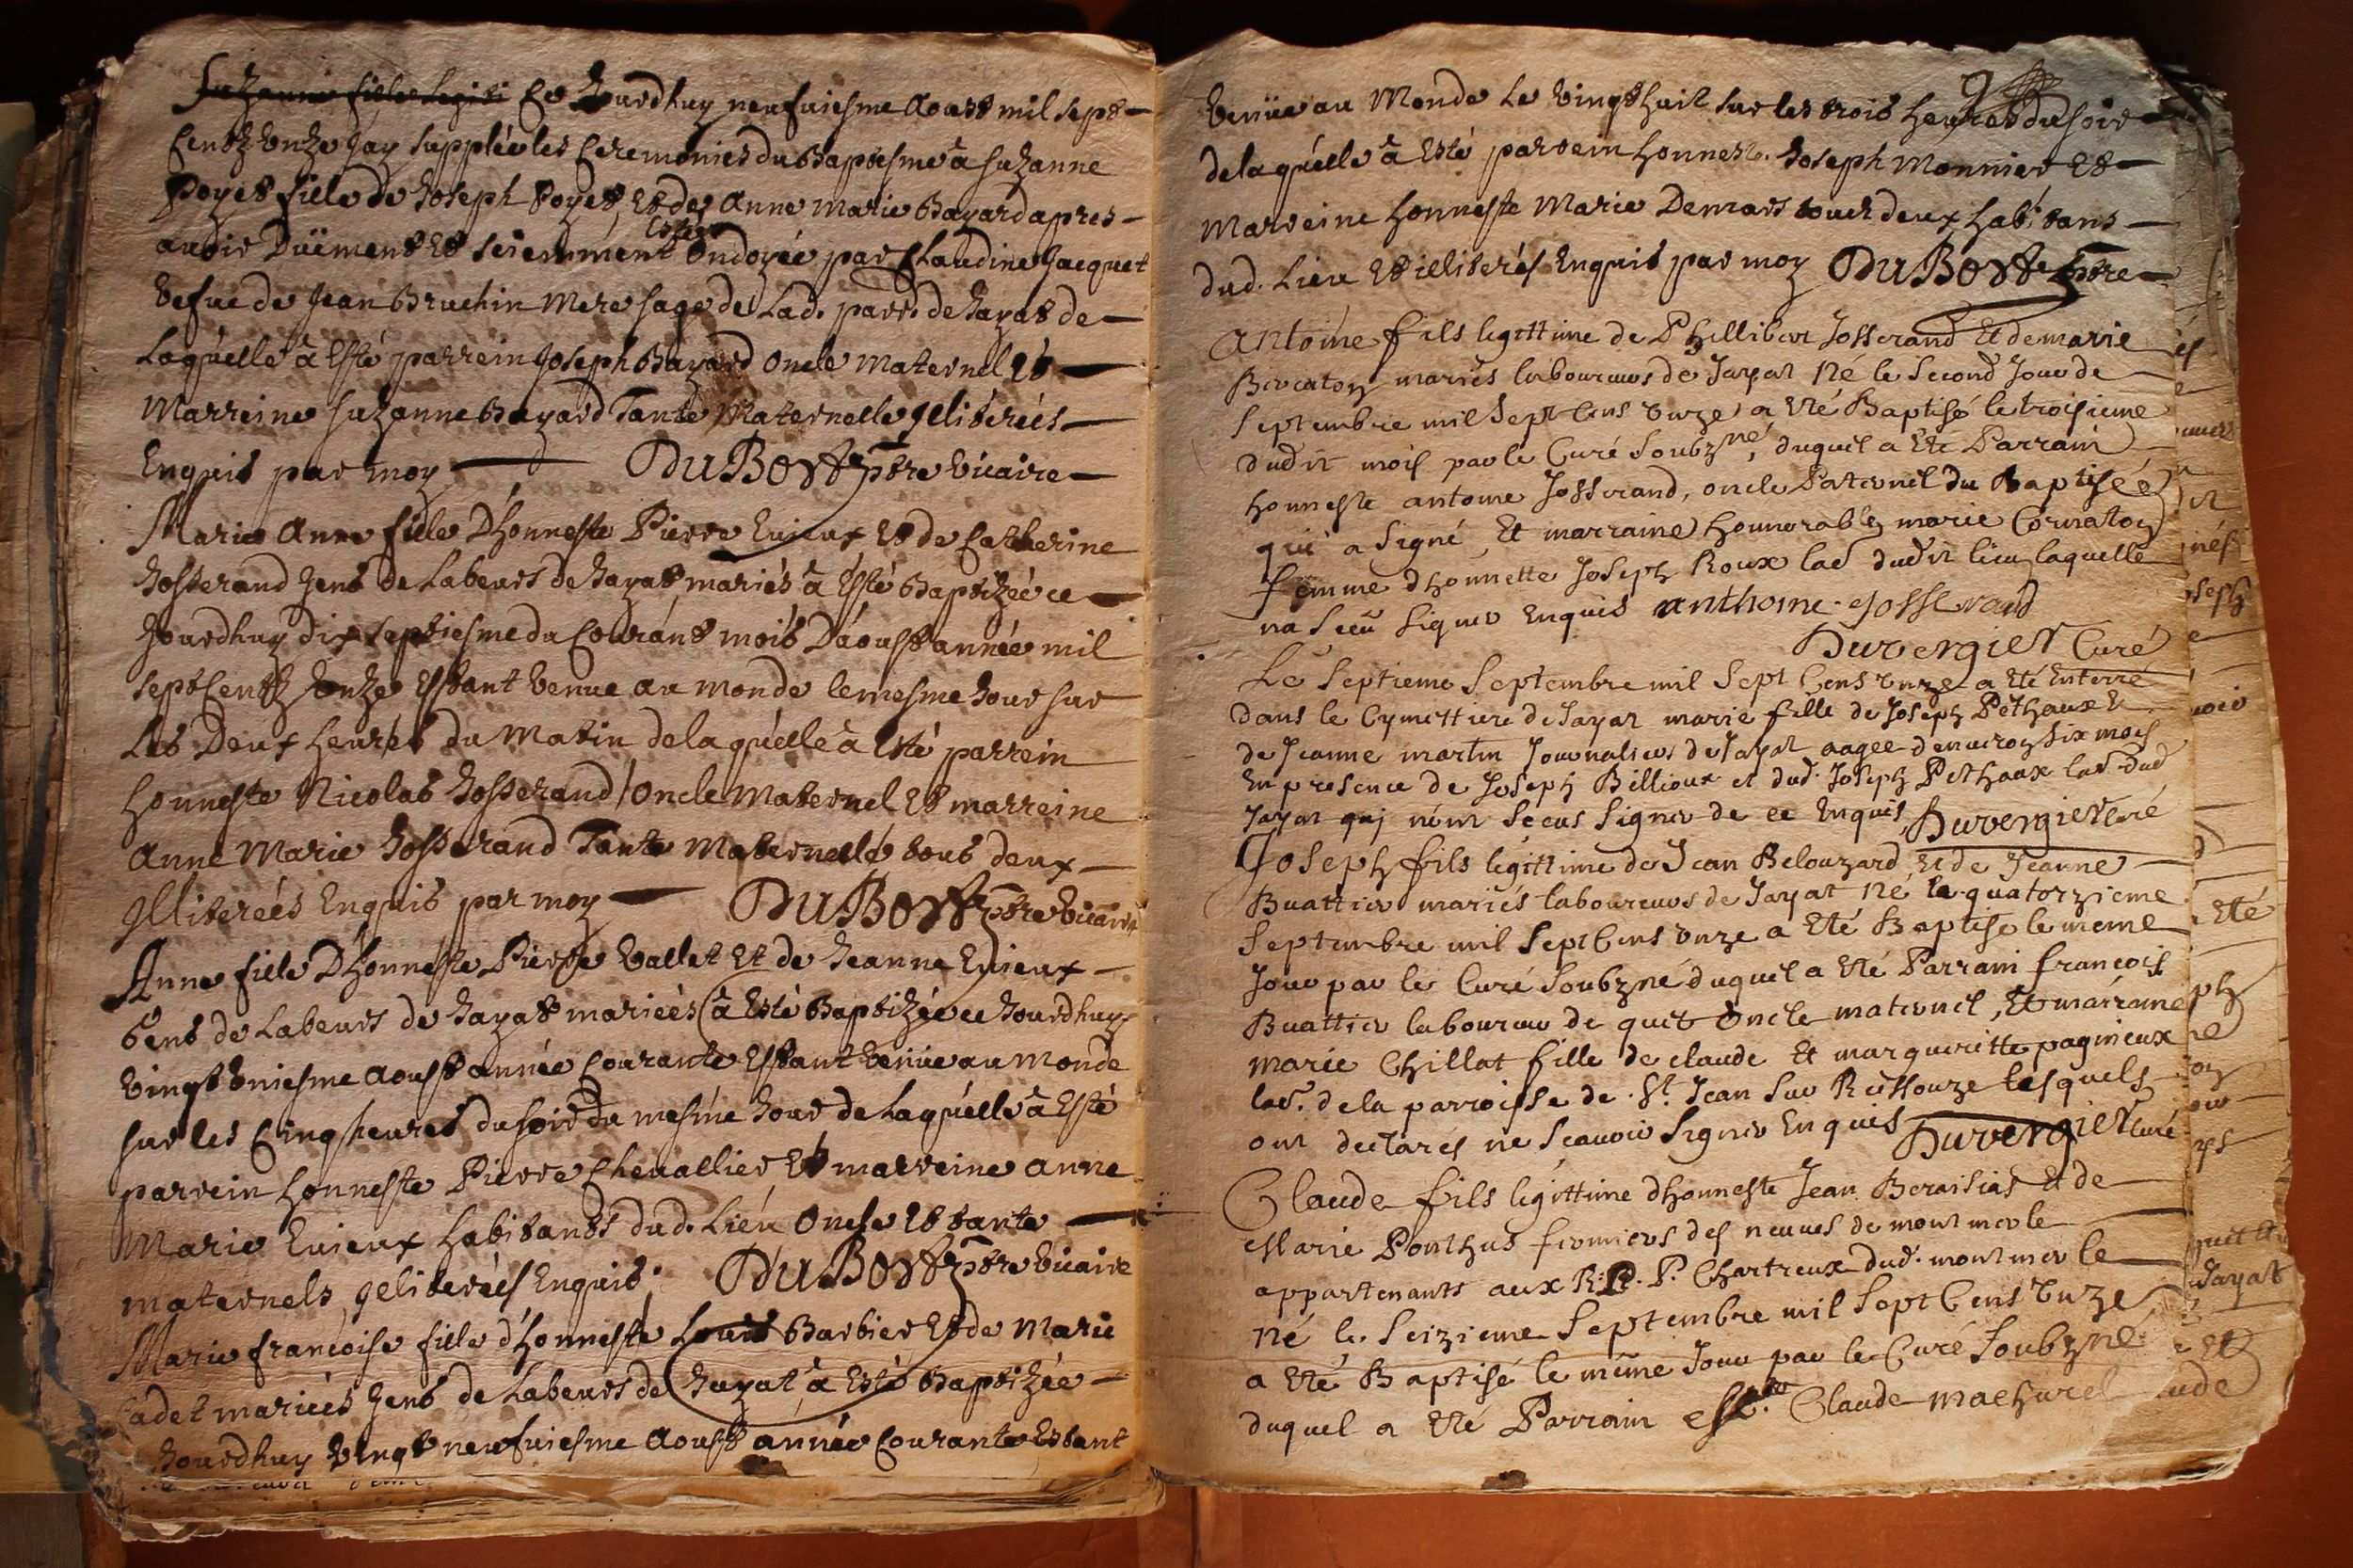 Suzanne fille legiti Ce Jourdhuy neufuiesme Aoust mil sept
Centz Unze Jay suppléé les Ceremonies du Baptesme à Suzanne
Poyet fille de Joseph Poyet, Et de Anne Marie Bayard apres
auoir Düement Et Seremment Estée Ondoyée par Claudine Jacquet
Vefue de Jean Bruchin Mere sage de Lad. parr. de Jayat de
Laquelle à Esté parrein Joseph Bayard Oncle Maternel Et
Marreine Suzanne Bayard Tante Maternelle Jlliterées
Enquis par moy DuBost ptre Vicaire
Marie Anne fille D'honneste Pierre Euieux Et de Catherine
Josserand Gens de Labeurs de Jayat mariés à Esté Baptizée ce
Jourdhuy dix septiesme du Courant mois D'aoust année mil
sept Centz Unze Estant Venue au monde le mesme Jour sur
Les Deux heures du Matin de laquelle à Esté parrein
honneste Nicolas Josserand Oncle Maternel Et marreine
Anne Marie Josserand Tante Maternelle tous deux
Jlliterées Enquis par moy DuBost ptre Vicaire
Anne fille D'honneste Pierre Vallet Et de Jeanne Euieux
Gens de Labeurs de Jayat mariées à Esté Baptizée ce Jourdhuy
Vingt Uniesme Aoust année Courante Estant Venüe au Monde
sur les Cinq heures du soir du mesme Jour de Laquelle à Esté
parrein honneste Pierre Cheuallier Et marreine Anne
Marie Euieux habitants dud. Lieu Oncle Et tante
maternels Jlliterées Enquis. DuBost ptre Vicaire
Marie françoise fille d'honneste Louis Barbier Et de Marie
Cadet mariées Gens de Labeurs de Jayat à Esté Baptizée
Jourdhuy Vingt neufuiesme Aoust année Courante Estant
9
Venüe au Monde Le Vingt huit sur les trois heures du soir
de laquelle à Esté parrein honneste Joseph Monnier Et
Marreine honneste Marie Demars tous deux habitans
dud. Lieu Et illiterés Enquis par moy DuBost ptre
Antoine fils legittime de Phillibert Josserand Et de marie
mariés laboureurs de Jayat Né le Second Jour de
Septembre mil Sept Cens Unze a Eté Baptisé le troisieme
dudit mois par le Curé Soubzné, duquel a Ete Parrain
honneste antoine Josserand, oncle Paternel du Baptisée
qui a Signé, Et marraine honnorable marie Cormatoy
femme dhonnette Joseph Roux lab dudit lieu laquelle
na Sceu Signer Enquis anthoine Josserand
Duvergier Curé
Le Septieme Septembre mil Sept Cens Unze a Eté Enterré
dans le Cymettiere de Jayat marie fille de Joseph Pethaux Et
de Jeanne martin Journaliers de Jayat aagee denuiron Six mois
En presence de Joseph Billioux et dud. Joseph Pethaux lab. dud
Jayat qui nont Sceus Signer de ce Enquis Duvergier Curé
Joseph fils legittime de Jean Belouzard, Et de Jeanne
Buattier mariés laboureurs de Jayat Né le quatorzieme
Septembre mil Sept Cens Unze a Eté Baptise le meme
Jour par le Curé Soubzné duquel a Eté Parrain francois
Buattier laboureur de quet Oncle maternel, Et marraine
marie Chillat fille de claude Et margueritte pagnieux
lab. de la parroisse de St. Jean Sur Reissouze lesquels
ont declarés ne Scauoir Signer Enquis Duvergier Curé
Claude fils legittime dhonneste Jean Beraisias Et de
Marie Ponthus fermiers des neuues de montmerle
appartenants aux R.R. P. Chartreux dud. montmerle
Né le Seizieme Septembre mil Sept Cens Unze
a Eté Baptisé le méme Jour par le Curé Soubzné
duquel a Eté Parrain Claude machurel